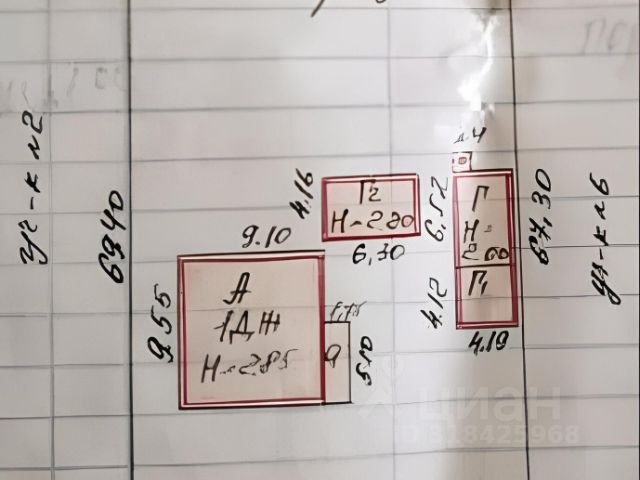 уч-к №2
69.40
9.10
9.55
А
1ДЖ
Н-2.85
1,75
а
5.10
4.16
Г2
Н-2.80
6,30
6,52
4.12
Г
Н-
Г1
4.19
67,30
уч-к №6
циан
ID 318425968